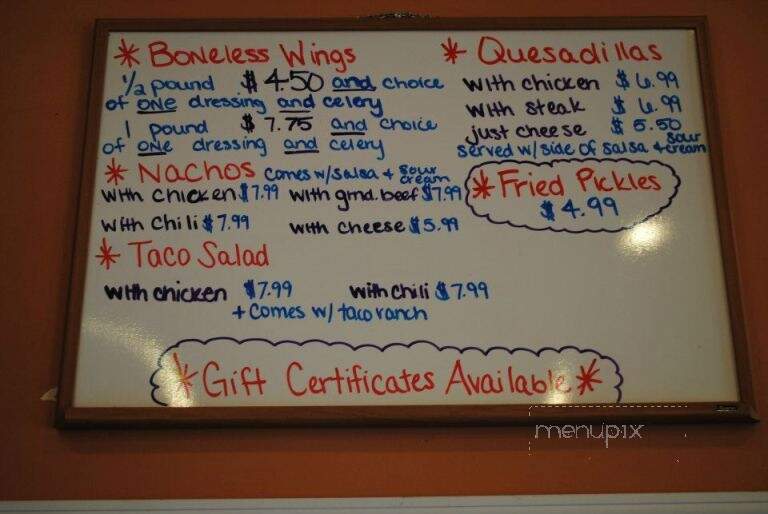 * Boneless Wings
1/2 pound $4.50 and choice
of one dressing and celery
1 pound $7.75 and choice
of one dressing and celery
* Nachos comes w/salsa + sour cream
with chicken $7.99 with grnd. beef $7.99
with chili $7.99 with cheese $5.99
* Taco Salad
with chicken $7.99 with chili $7.99
+ comes w/ taco ranch
* Quesadillas
with chicken $6.99
with steak $6.99
just cheese $5.50
served w/ side of salsa + sour cream
* Fried Pickles
$4.99
* Gift Certificates Available *
menupix